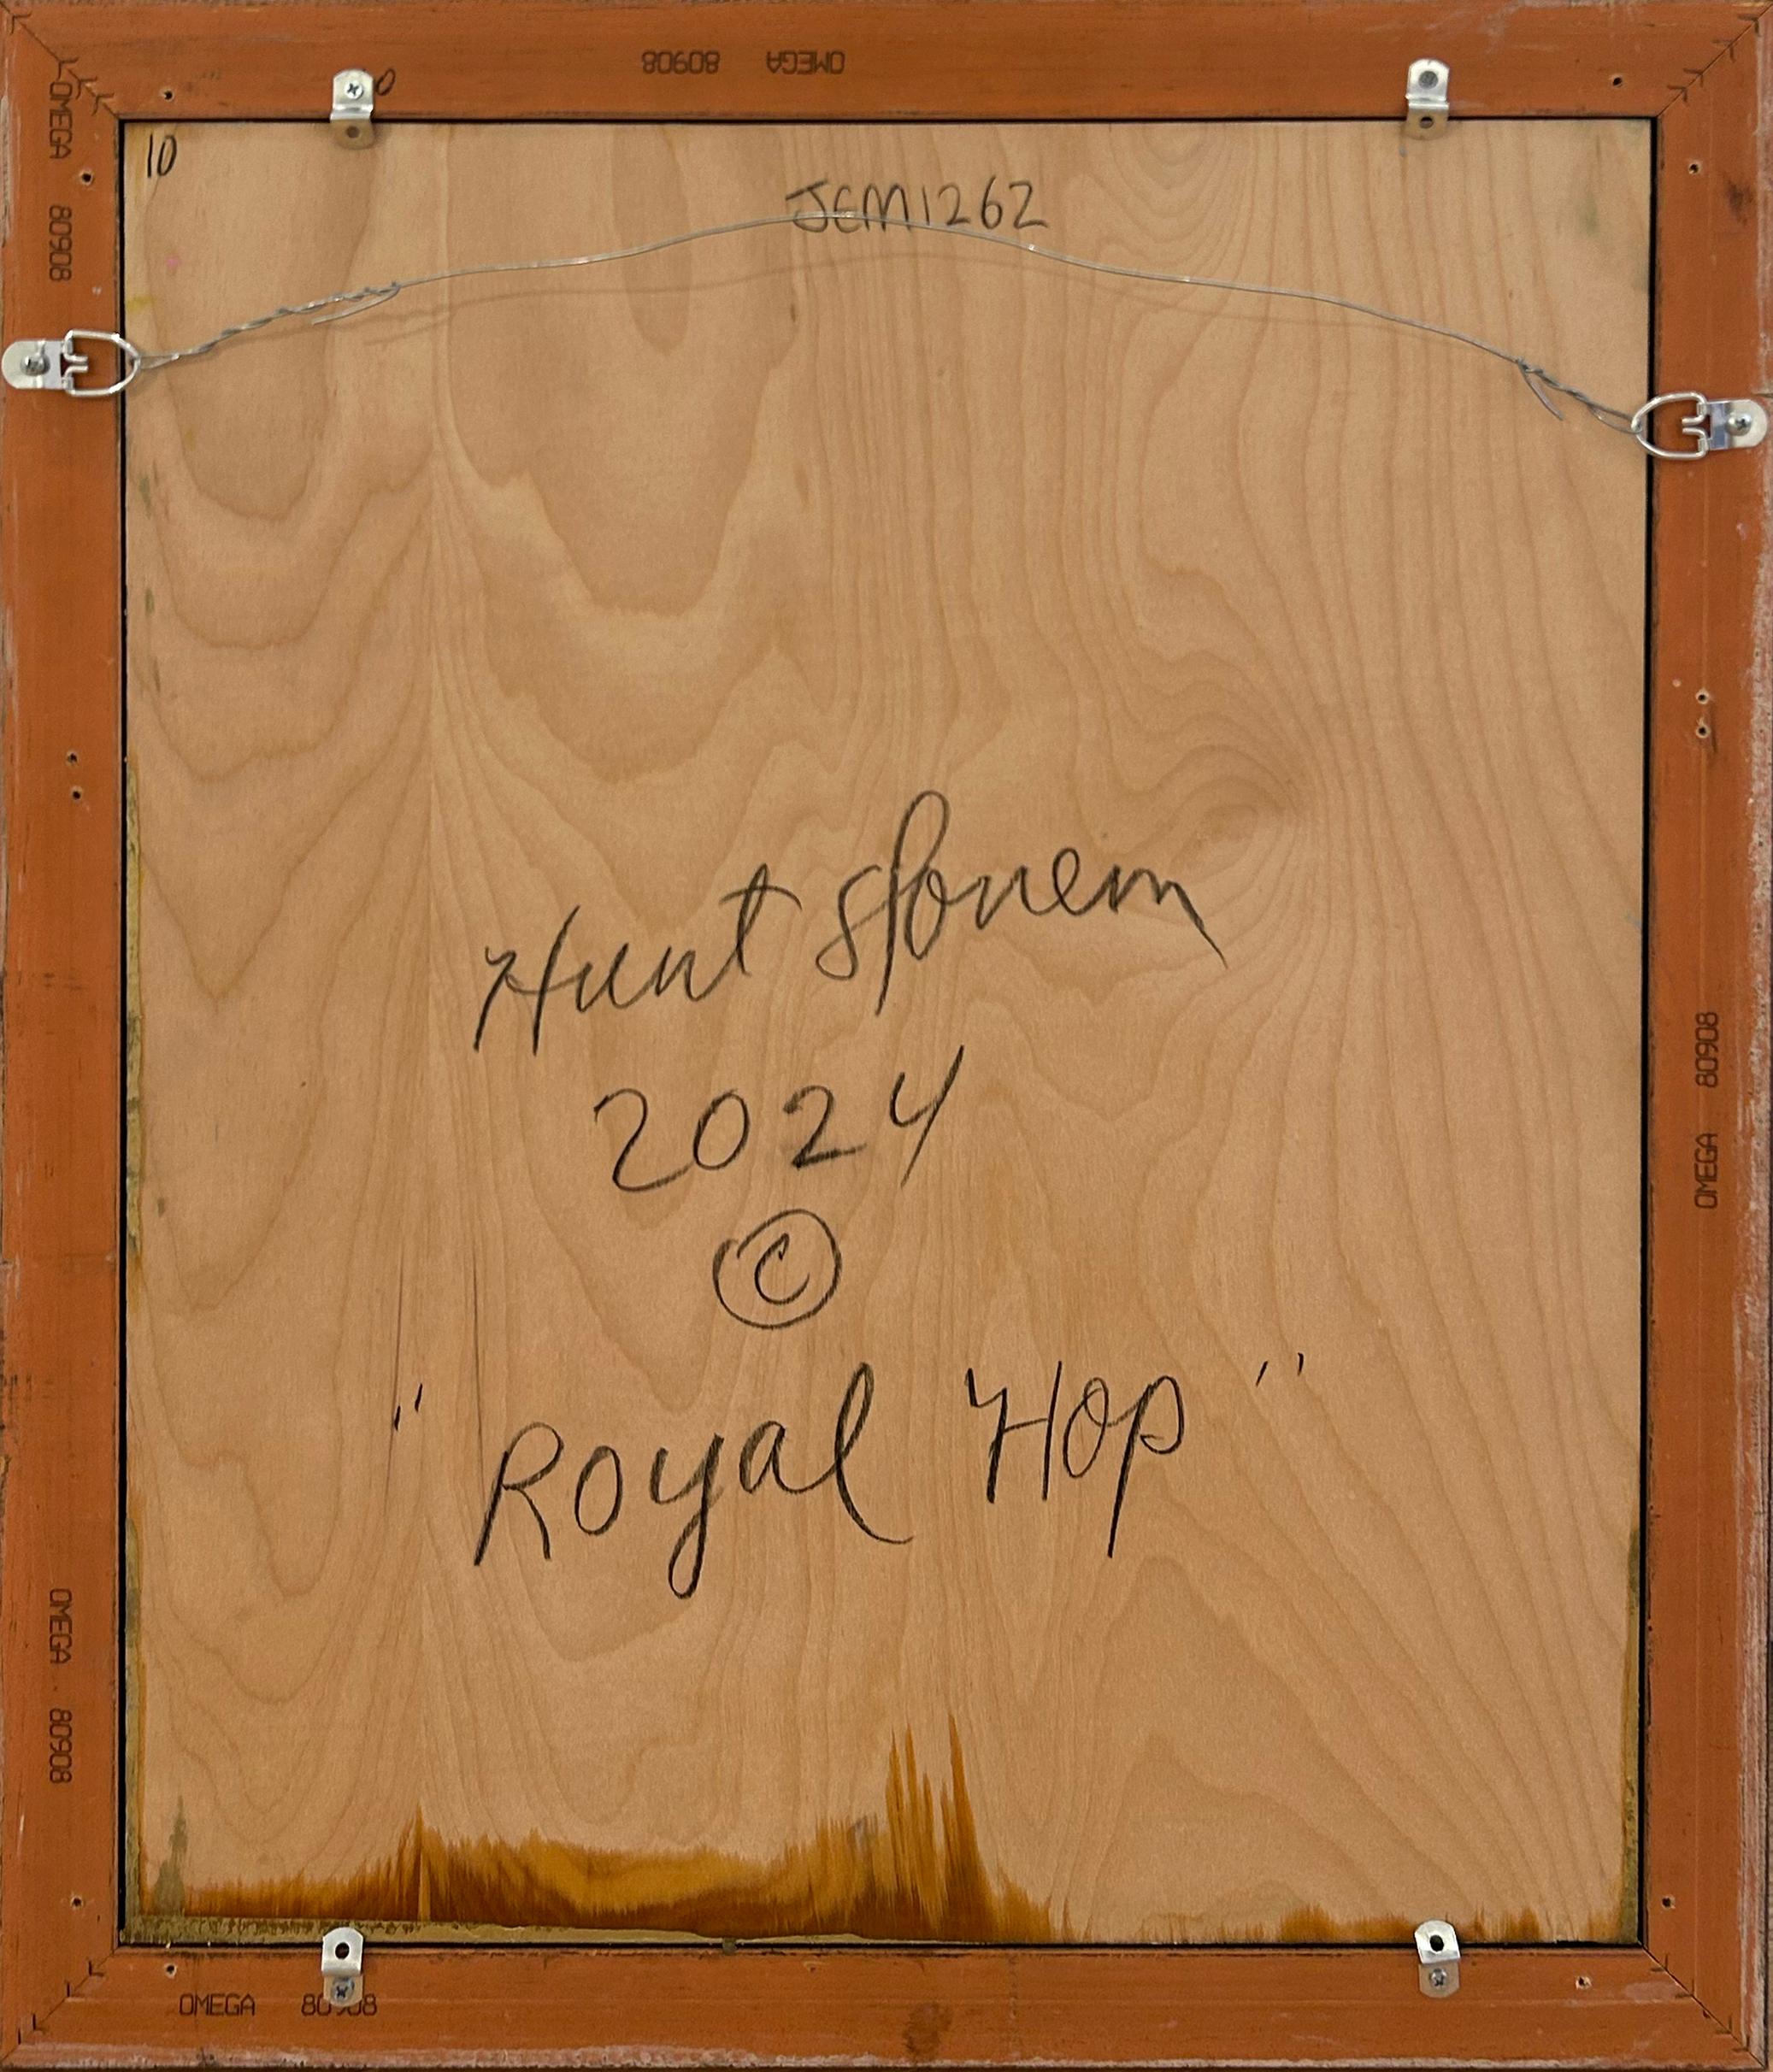 OMEGA 80908
OMEGA 80908
10
JEM1262
Hunt Slonem
2024
©
"Royal Hop"
OMEGA 80908
OMEGA 80908
OMEGA 80908